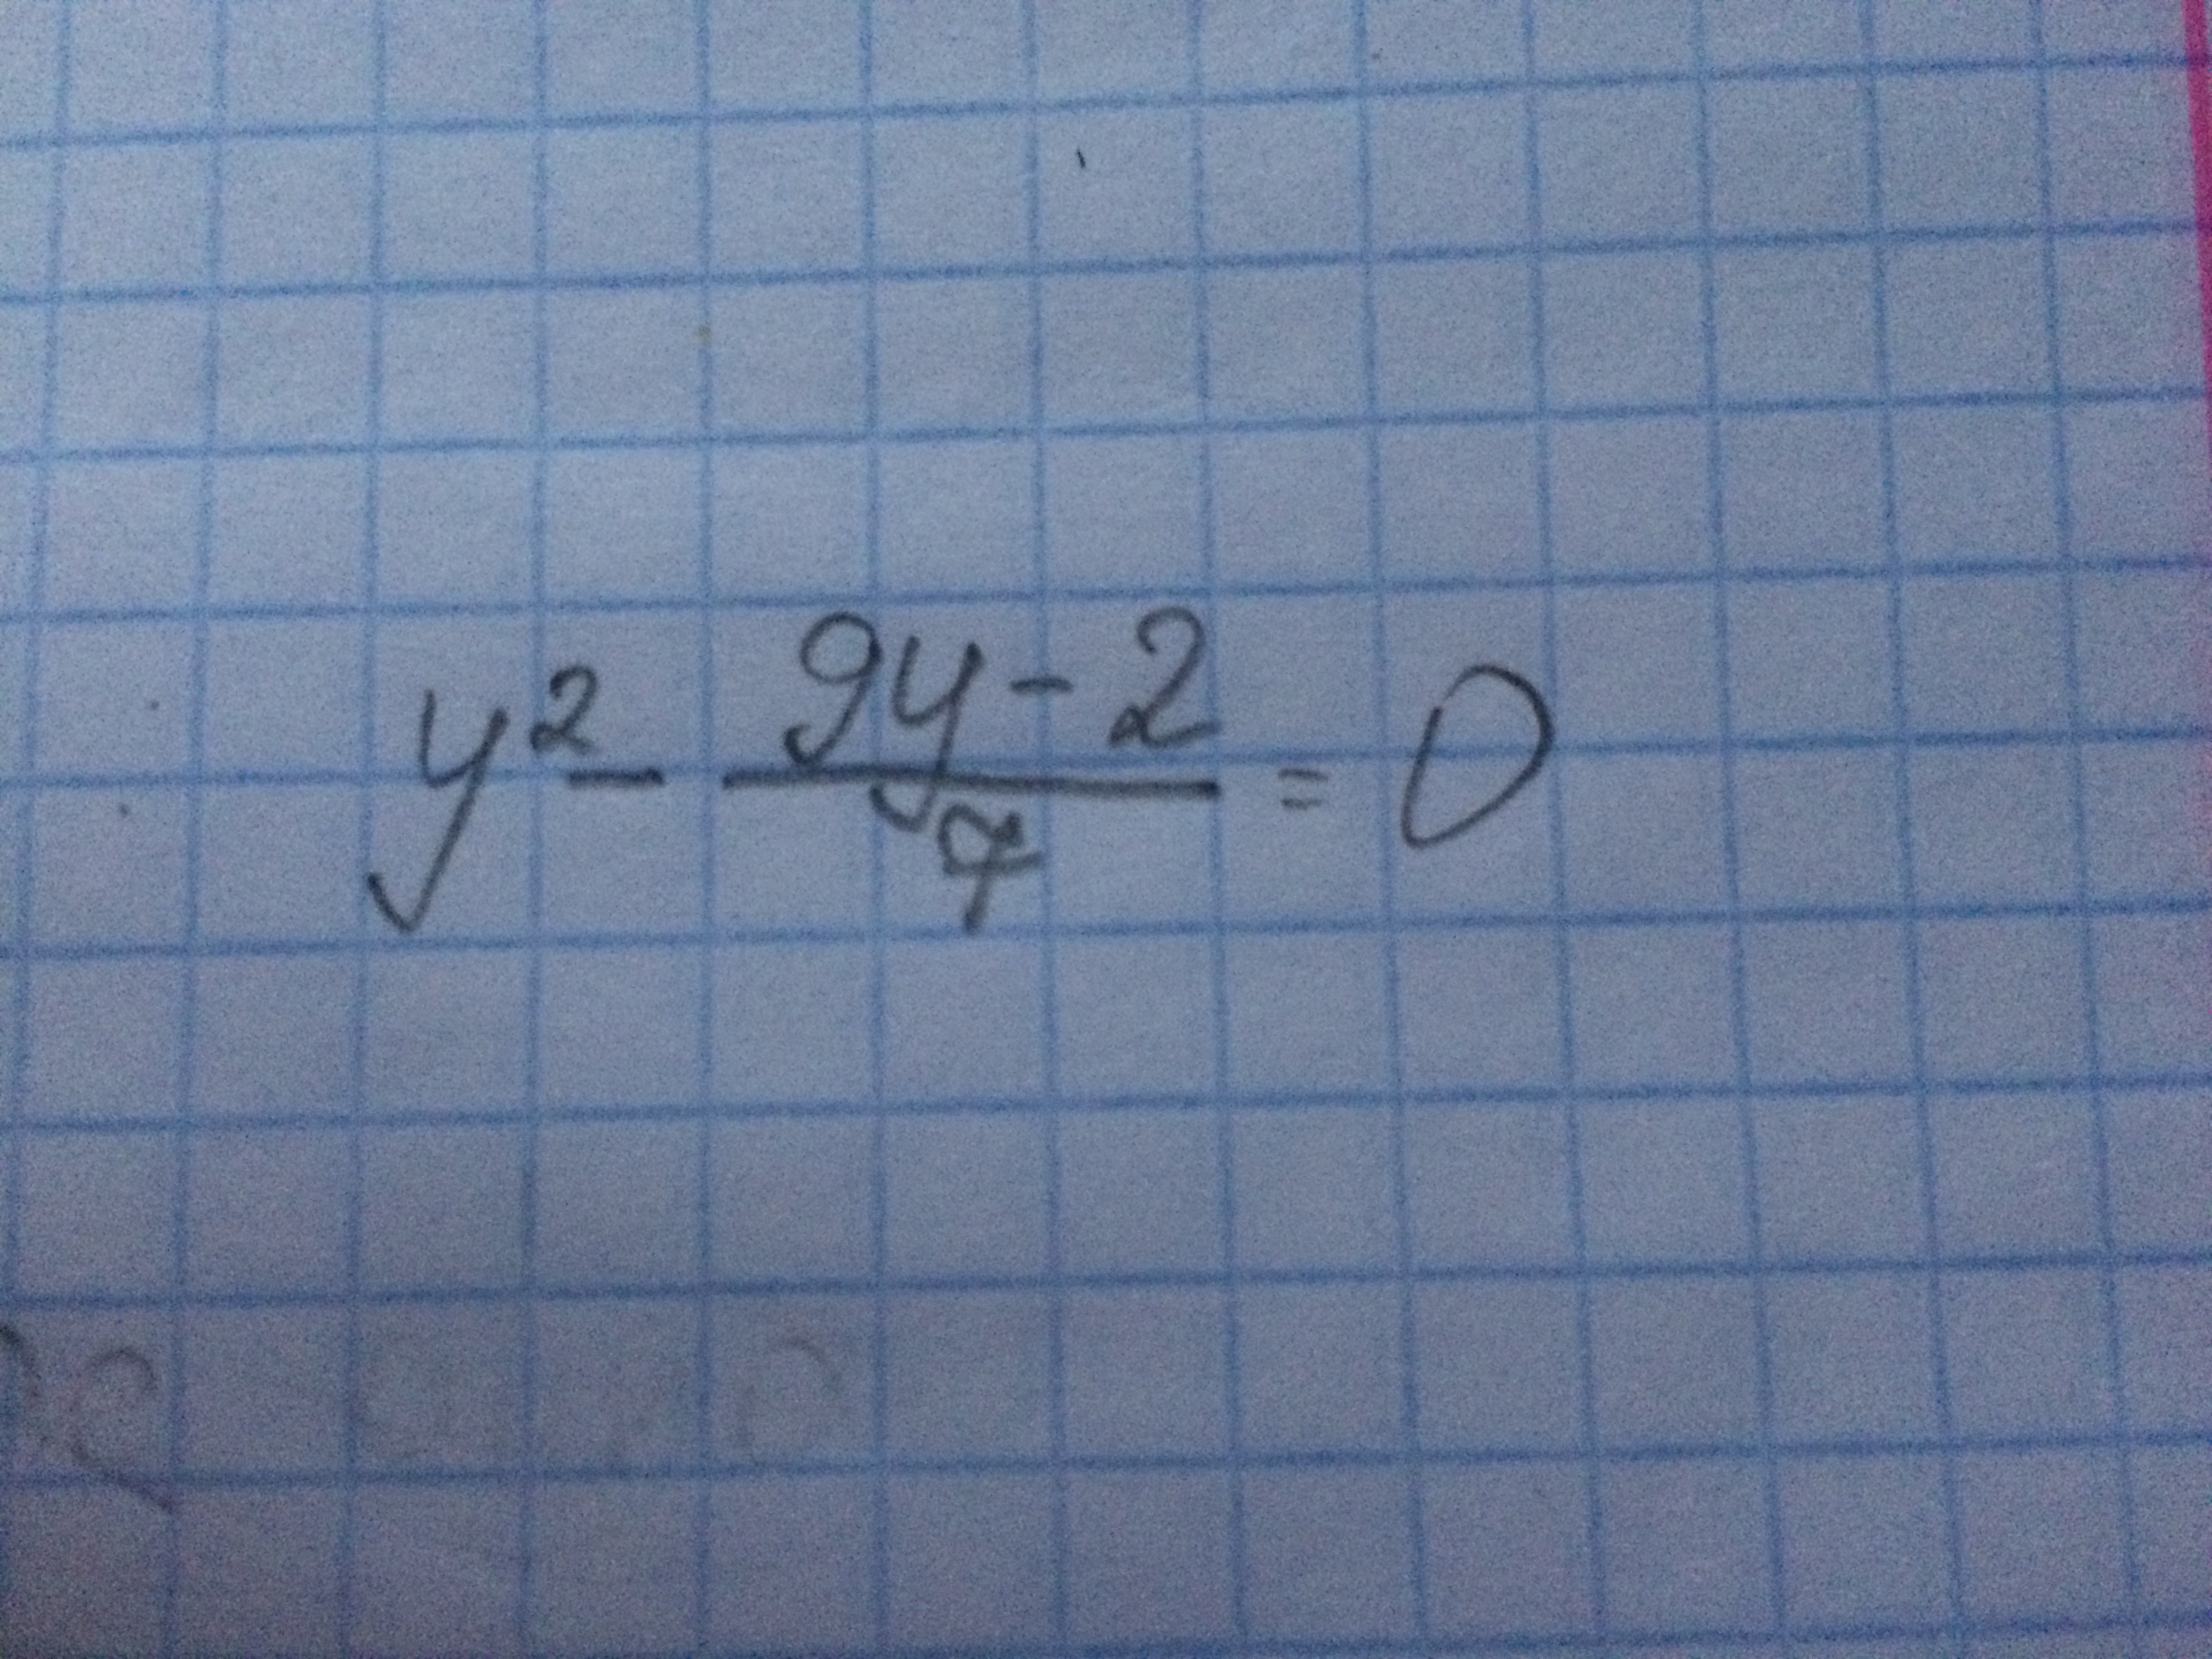 y² - (9y - 2)/7 = 0